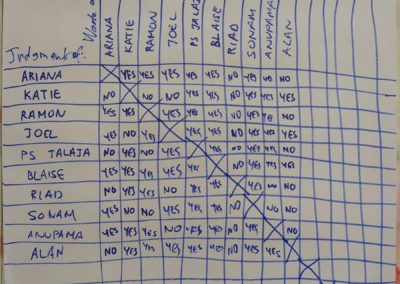 Judgment of: Work of ARIANA KATIE RAMON JOEL PS TALAJ BLAISE RIAD SONAM ANUPAMA ALAN
ARIANA YES YES YES YES YES NO YES YES NO
KATIE NO NO NO YES YES NO YES YES YES
RAMON YES YES YES YES YES NO YES YES NO
JOEL YES NO YES YES YES NO YES YES YES
PS TALAJA NO YES NO YES YES NO YES YES YES
BLAISE YES YES YES YES YES NO YES YES YES
RIAD NO YES YES NO YES YES YES NO NO
SONAM YES NO NO YES YES YES NO NO NO
ANUPAMA YES YES YES NO YES YES NO YES NO
ALAN NO YES YES YES YES YES NO YES YES